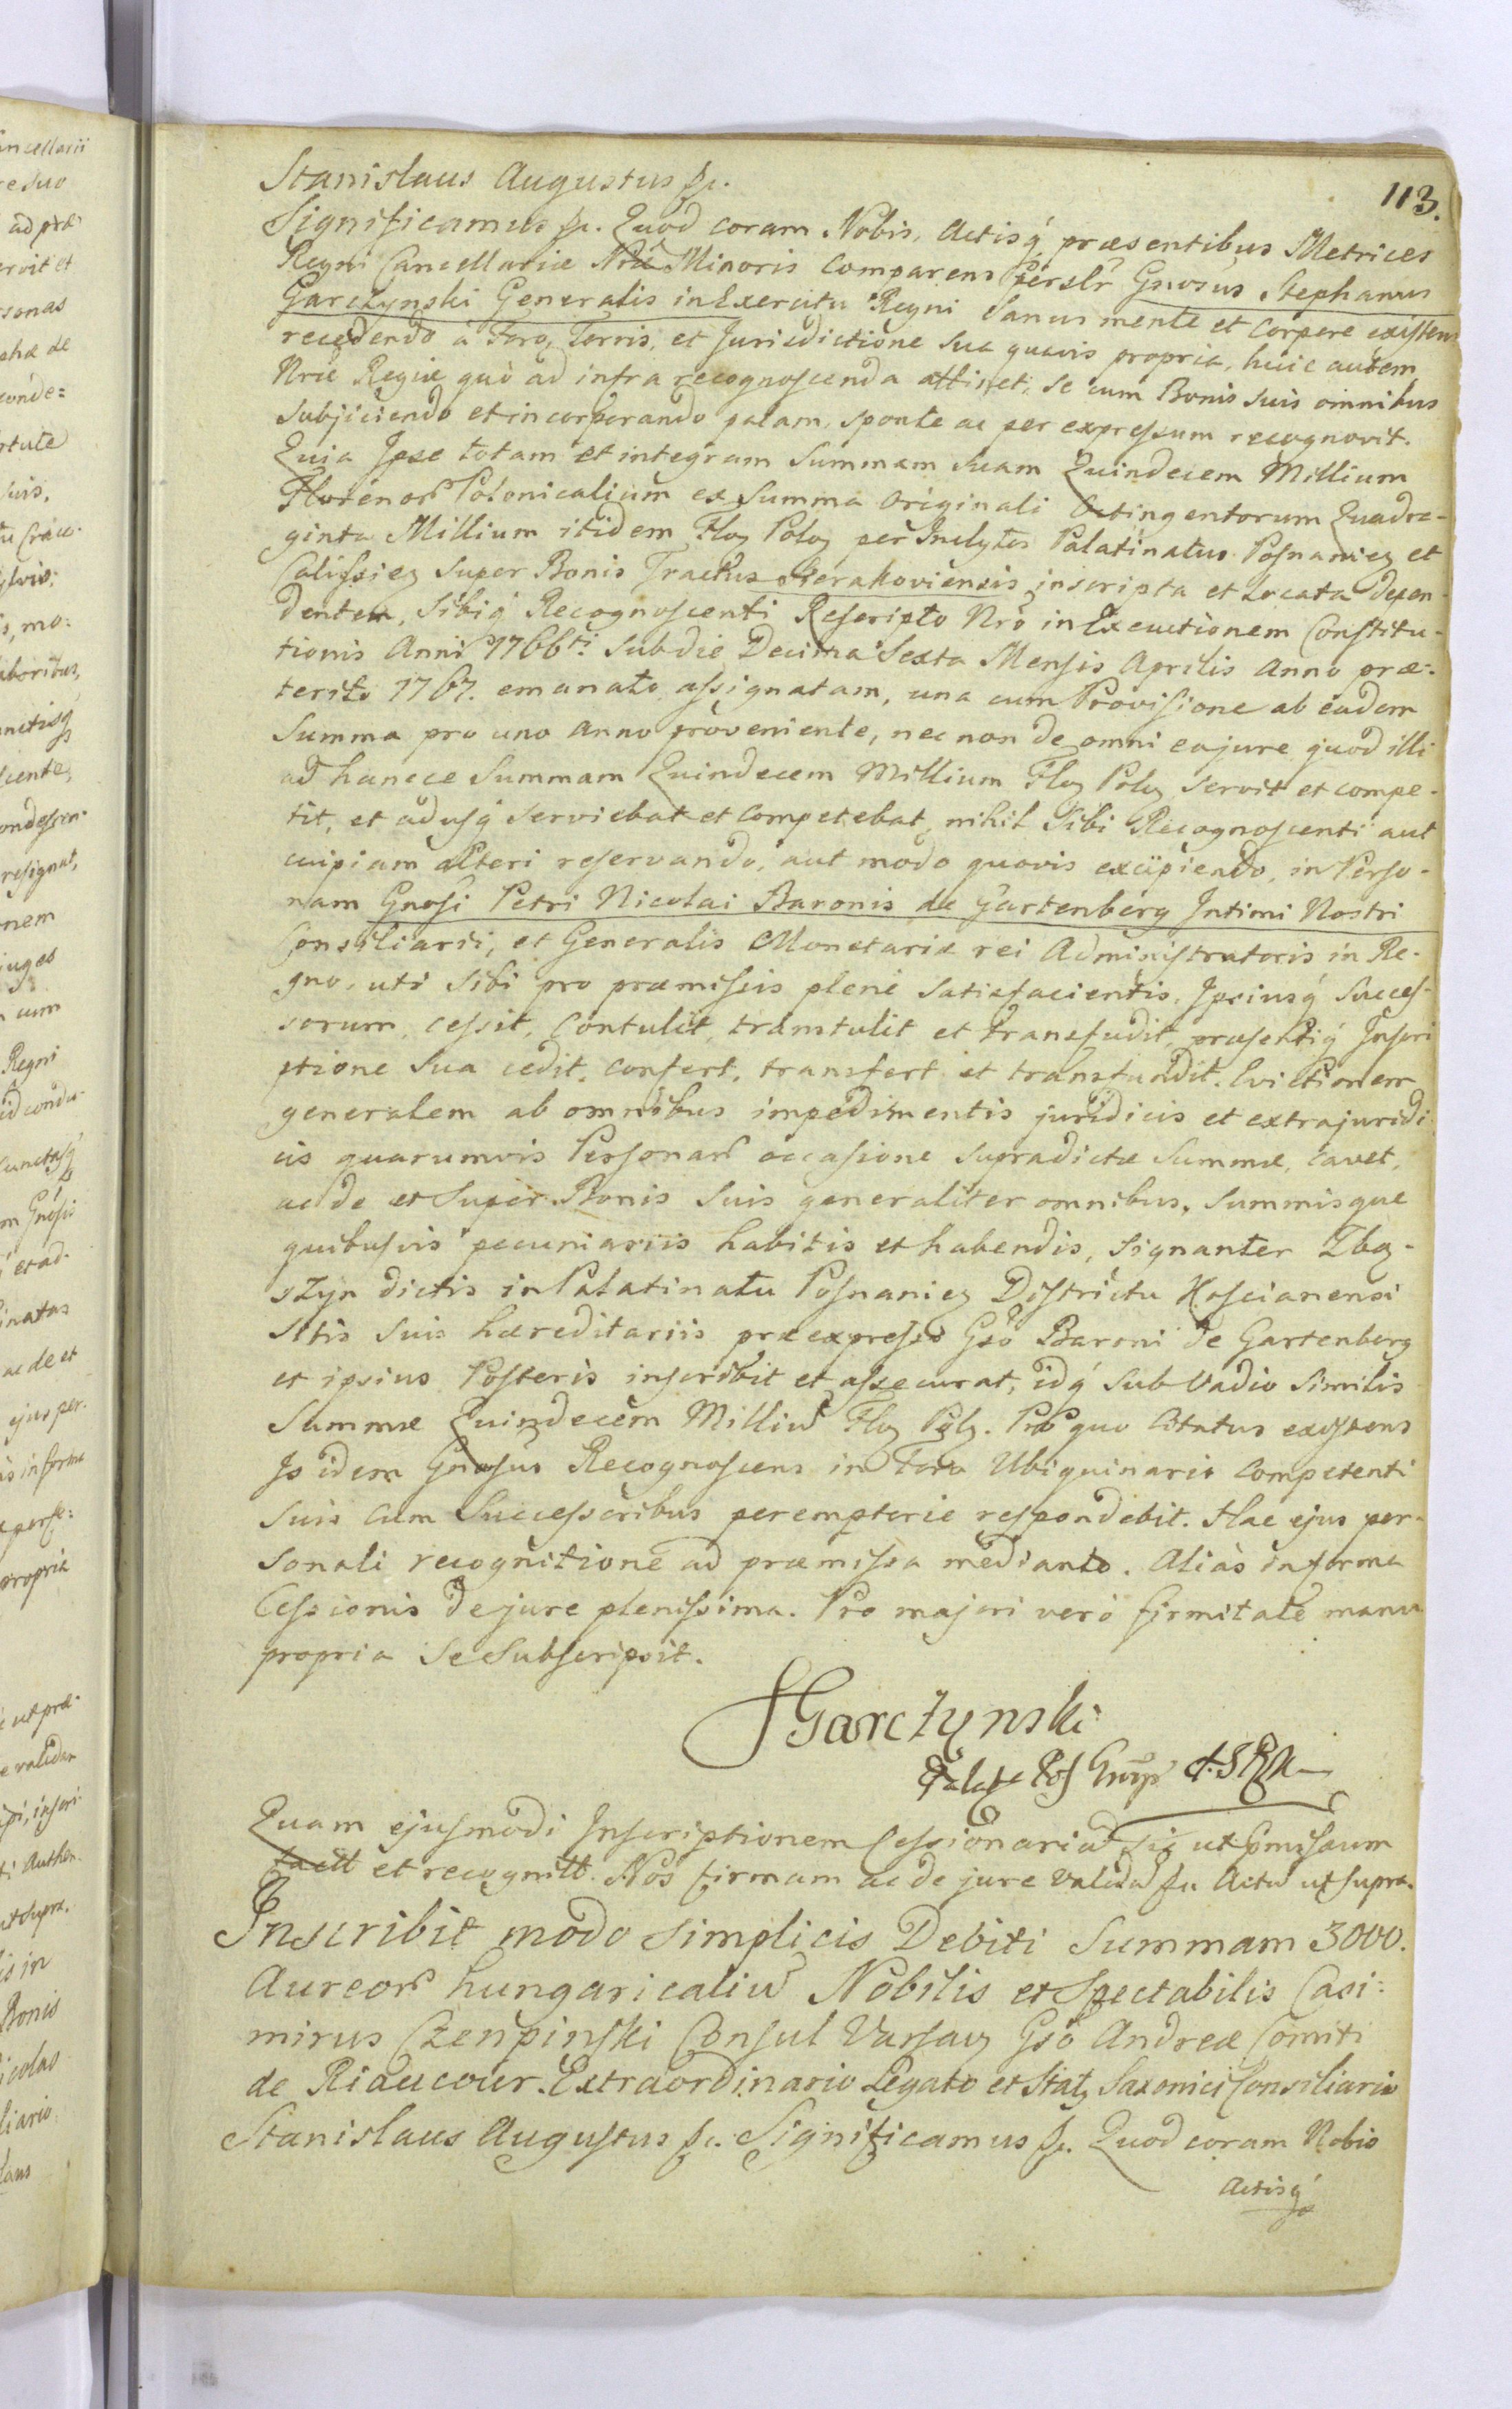 113.
Stanislaus Augustus &c.
Significamus &c. Quod coram Nobis, Actisq́ præsentibus Metrices
Regni Cancellariæ Nræ Minoris Comparens Persłr Gnosus Stephanus
Garczynski Generalis in Exercitu Regni Sanus mente et Corpore existens
recedendo à Foro, Terris, et Jurisdictione Sua quavis propria, huic autem
Nræ Regiæ quò ad infra recognoscenda attinet, Se cum Bonis Suis omnibus
Subjiciendo et incorporando palam, sponte ac per expressum recognovit.
Quia Ipse totam et integram Summam Suam Quindecem Millium
Florenor Polonicalium ex Summa Originali Octingentorum Quadra-
ginta Millium itidem Flo₃ Polo₃ per Inclytos Palatinatus Posnanien₃ et
Calissien₃ Super Bonis Tractus Sierakoviensis inscripta et Locata depen-
dentem, Sibiq́ Recognoscenti Rescripto Nrò in Executionem Constitu-
tionis Anni 1766ti Sub die Decima Sexta Mensis Aprilis Anno præ:
terito 1767. emanato assignatam, una cum Provisione ab eadem
Summa pro uno Anno proveniente, nec non de omni eo jure quod illi
ad hancce Summam Quindecem Millium Flo₃ Polo₃ servit et compe-
tit, et adusq́ serviebat et competebat, nihil Sibi Recognoscenti aut
cuipiam alteri reservando, aut modo quovis excipiendo, in Perso-
nam Gnosi Petri Nicolai Baronis de Gartenberg Intimi Nostri
Consiliarii, et Generalis Monetariæ rei Administratoris in Re-
gno, uti Sibi pro præmissis plenè Satisfacientis, Ipsiusq́ Succes-
sorum, cessit, Contulit, transtulit et transfudit, præsentiq́ Inscri
ptione Sua cedit, confert, transfert et transfundit. Evictionem
generalem ab omnibus impedimentis juridicis et extrajuridi
cis quarumvis Personar occasione Supradictæ Summæ, cavet,
ac de et Super Bonis Suis generaliter omnibus, Summisque
quibusvis pecuniariis habitis et habendis, Signanter Zbą-
szyn dictis in Palatinatu Posnanien₃ Districtu Koscianensi
Sitis Suis hæreditariis præexpresso Gsò Baroni de Gartenberg
et ipsius Posteris inscribit et assecurat, idq́ Sub Vadio Similis
Summæ Quindecem Milliu Flo₃ Polo₃. Pro quo Citatus existens
Is idem Gnosus Recognoscens in Foro Ubiquinario Competenti
Suis cum Successoribus peremptorie respondebit. Hac ejus per-
sonali recognitione ad præmissa mediante. Aliàs in forma
Cessionis de jure plenissima. Pro majori verò firmitate manu
propria Se Subscripsit.
SGarczynski
Quam ejusmodi Inscriptionem Cessionaria sic ut pmissum
et recognitt. Nos firmam ac de jure valida &c Actu ut Supra.
Inscribit modo simplicis Debiti Summam 3000.
Aureor hungaricaliu Nobilis et Spectabilis Casi:
mirus Czenpinski Consul Varsav₃ Gsò Andreæ Comiti
de Riaucour. Extraordinario Legato et Stat₃ Saxonici Consiliario
Stanislaus Augustus &c. Significamus &c. Quod coram Nobis
Actisq́